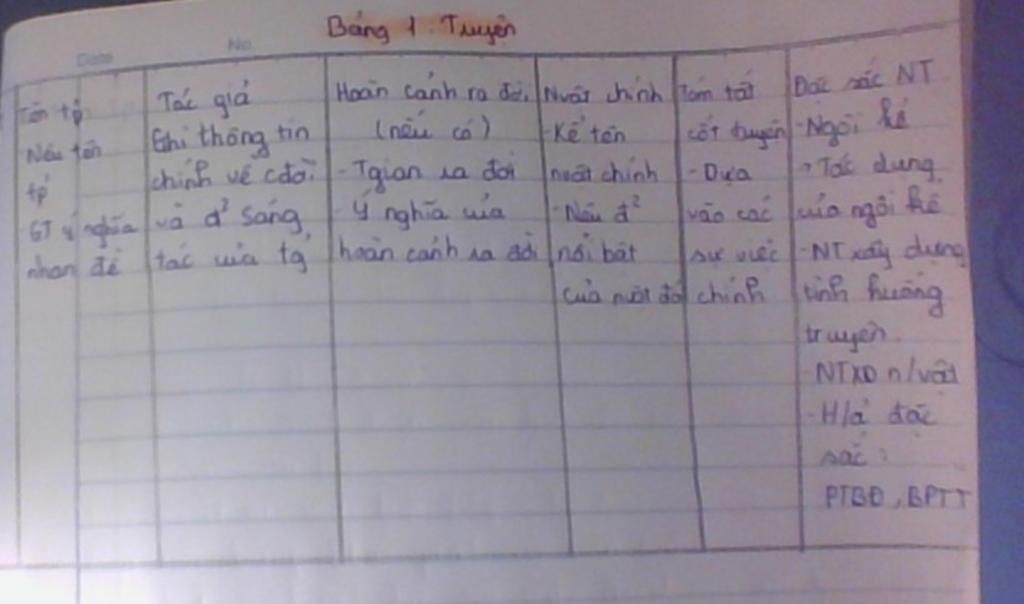 Bảng 1: Truyện
Date No.
Tên tp
Nêu tên
tp
GT ý nghĩa
nhan đề
Tác giả
Ghi thông tin
chính về cđời
và đ² sáng
tác của tg
Hoàn cảnh ra đời
(nếu có)
- Tgian ra đời
- Ý nghĩa của
hoàn cảnh ra đời
Nvật chính
- Kể tên
nvật chính
- Nêu đ²
nổi bật
của nvật đó
Tóm tắt
cốt truyện
- Dựa
vào các
sự việc
chính
Đặc sắc NT
- Ngôi kể
→ Tác dụng
của ngôi kể
- NT xây dựng
tình huống
truyện.
- NTXD n/vật
- H/ả đặc
sắc:
PTBĐ, BPTT